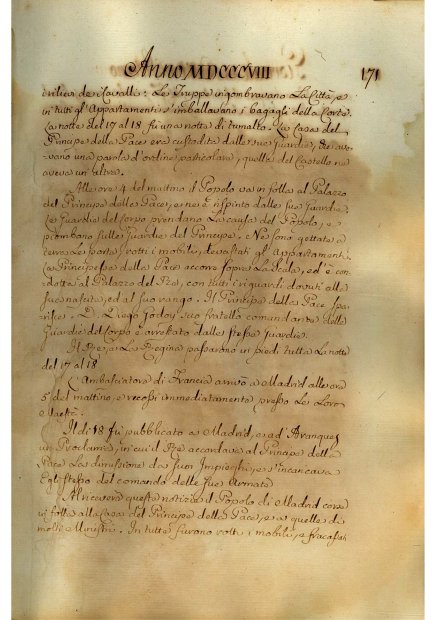 Anno MDCCCVIII 171
civilica de' Cavalli: Le Truppe ingombravano La Città, e
in tutti gl'Appartamenti s'imballavano i bagagli della Corte.
La notte del 17 al 18 fù una notte di tumulto. La Casa del
Principe della Pace era custodita dalle sue Guardie, che ave-
vano una parola d'ordine particolare; quelle del Castello ne
aveva un'altra.
Alle ore 4 del mattino il Popolo va in folla al Palazzo
del Principe della Pace, e ne è respinto dalle sue Guardie.
Le Guardie del Corpo prendono La causa del Popolo, e
piombono sulle Guardie del Principe. Ne sono gettate a
terra Le porte, rotti i mobili, devastati gl'Appartamenti.
La Principessa della Pace accorre sopra La Scala, ed è con-
dotta al Palazzo del Rè, con tutti i riguardi dovuti alla
sua nascita, ed al suo rango. Il Principe della Pace spa-
risce. D. Diego Godoy suo fratello comandante delle
Guardie del Corpo è arrestato dalle stesse Guardie.
Il Rè, e La Regina passarono in piedi tutta La notte
del 17 al 18
L'Ambasciatore di Francia arrivò a Madrid alle ore
5 del mattino, e recossi immediatamente presso Le Loro
Maestà.
Il dì 18 fù pubblicato a Madrid, e ad Aranques
un Proclama, in cui il Rè accordava al Principe della
Pace La dimissione da suoi Impieghi, e s'incaricava
Egli stesso del comando delle sue Armate
Al ricevere questa notizia il Popolo di Madrid corre
in folla alla Casa del Principe della Pace, e a quelle di
molti Ministri. In tutte furono rotti i mobili, e fracassat